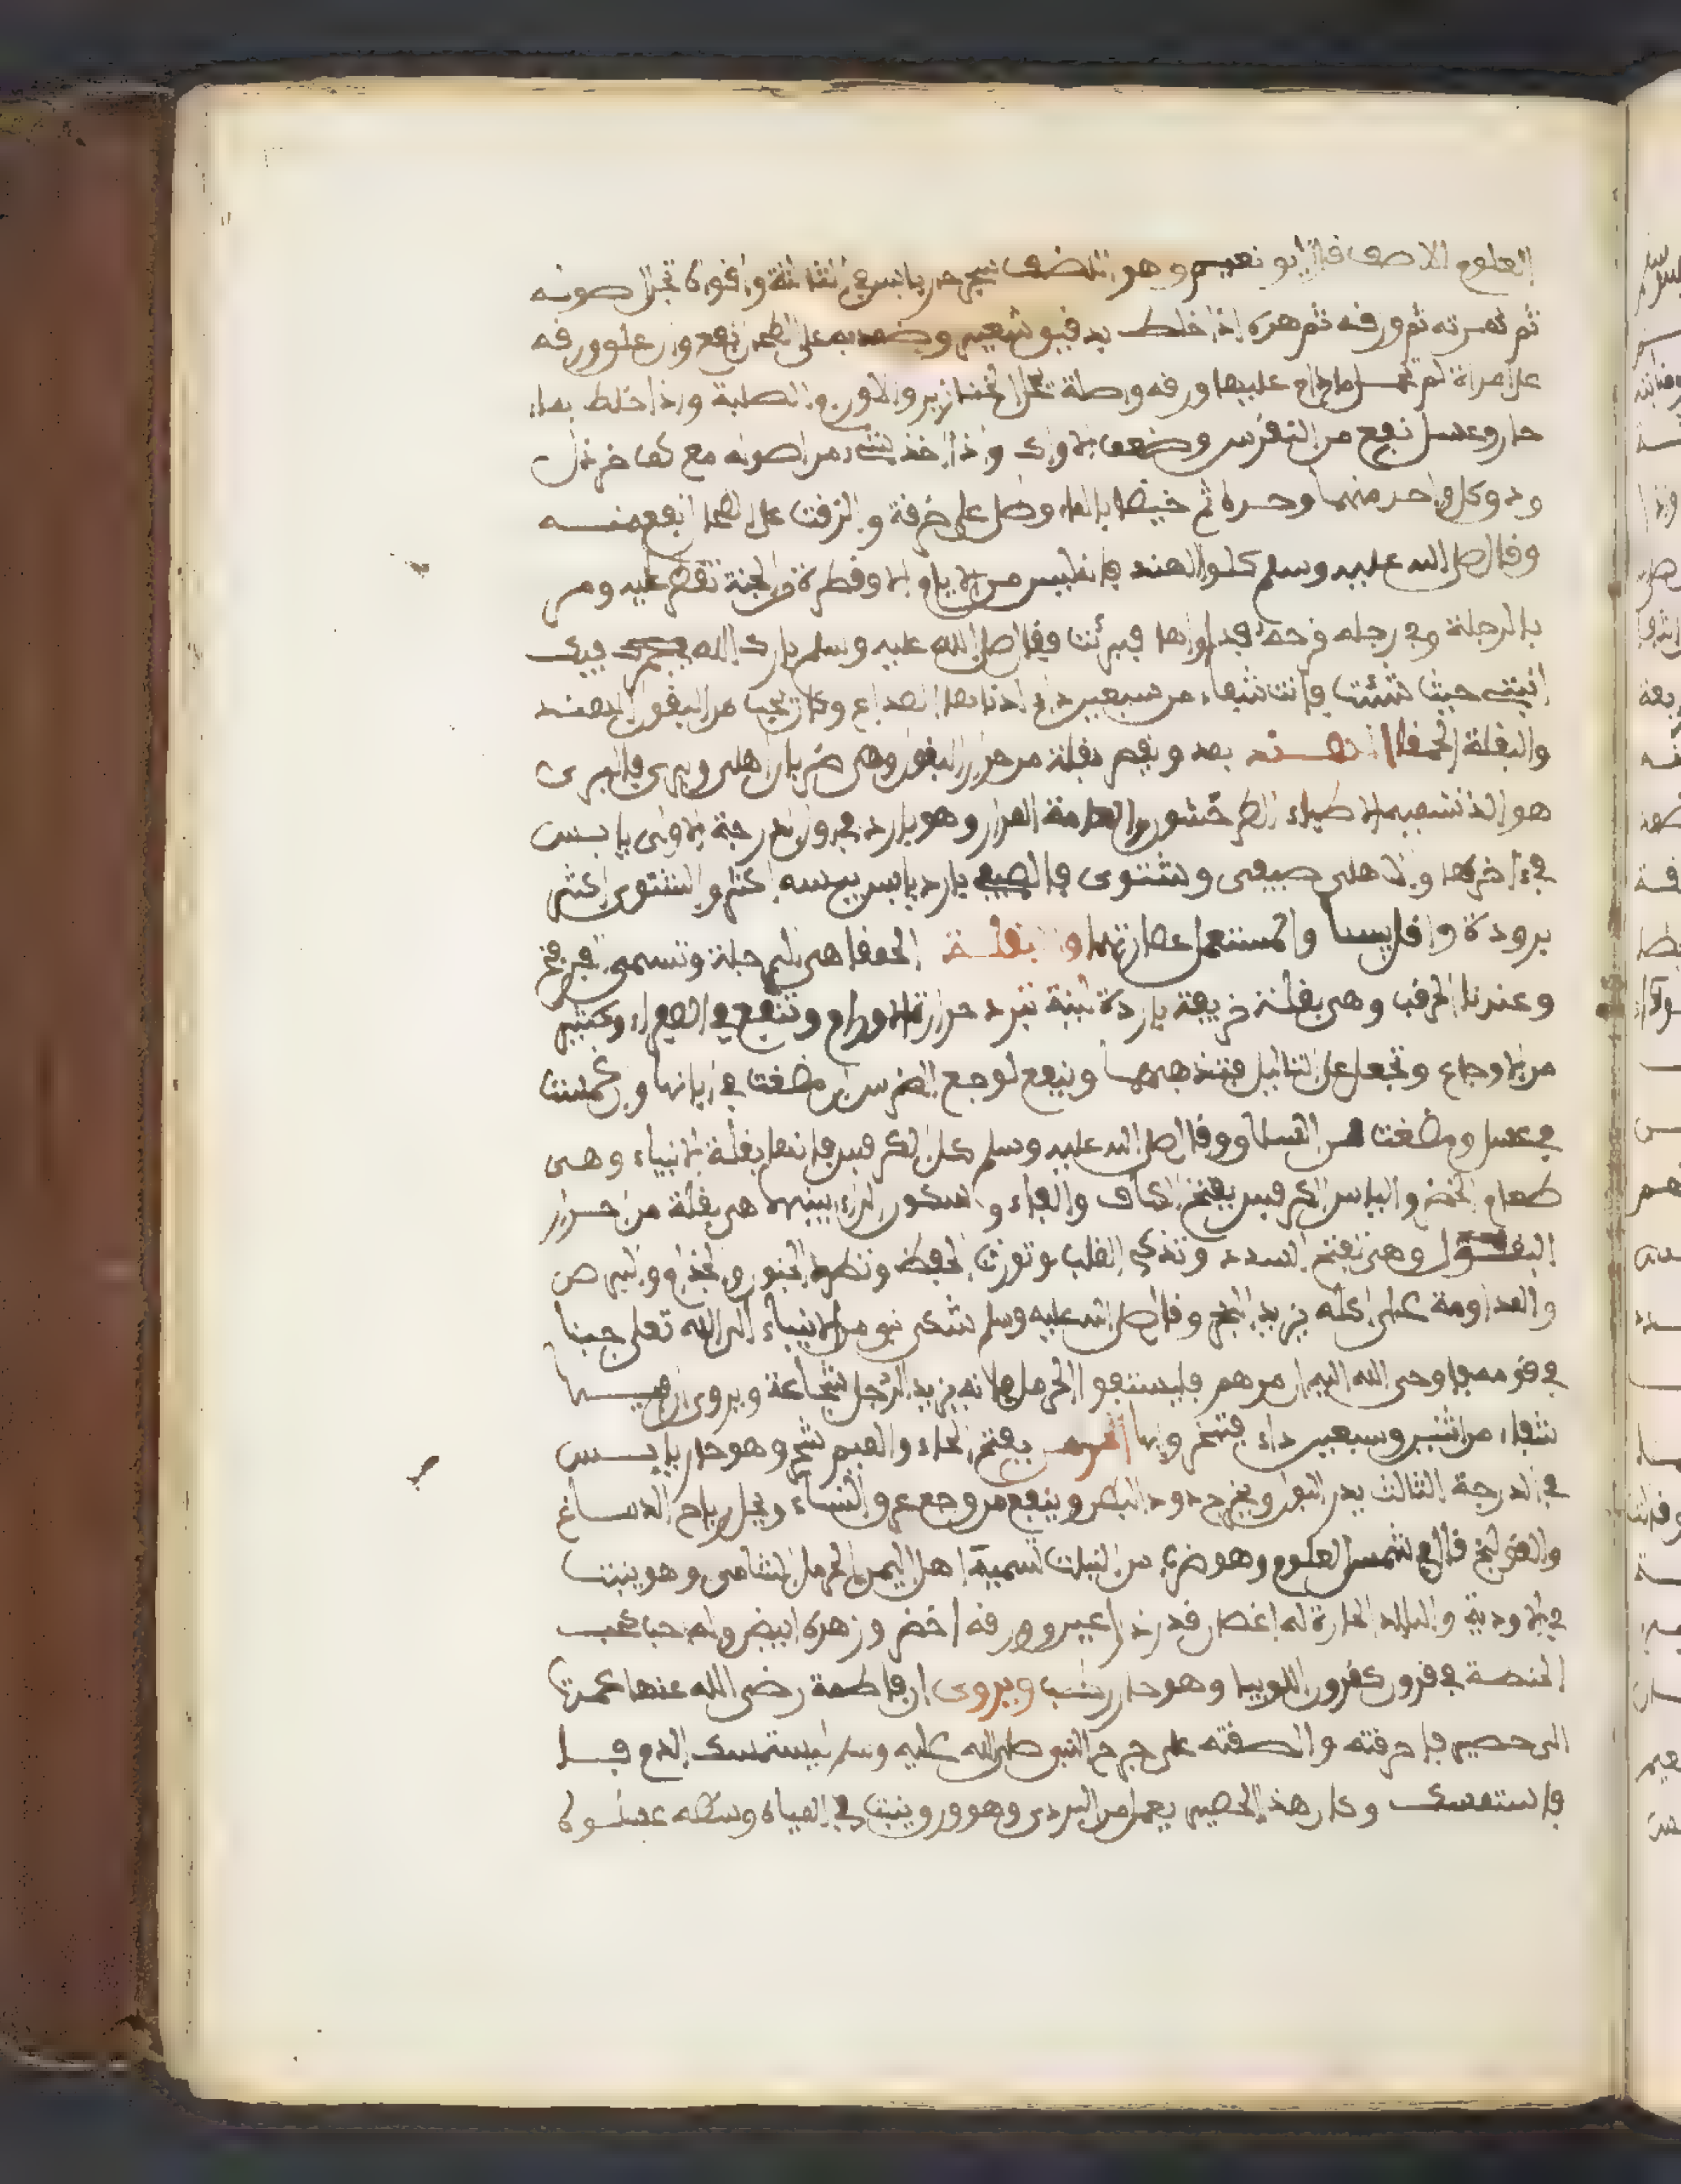 العلوم الاصف قال ابو نعيم وهو اللصف شجر حار يابس في الثالثة واقواه تجزا اصوله
ثم ثمرته ثم ورقه ثم هره اذا خلط بدقيق شعير وضمد به على الطحال نفع وان علق ورقه
على امراة لم تحمل مادام عليها ورقه واصله تحلل الخنازير والاورام الصلبة واذا خلط بماء
حار وعسل نفع من النقرس وضعف الاوراك واذا اخذ شيء من اصوله مع كف خردل
ودق كل واحد منهما وحده ثم خيضا بالماء وطلي على خرقة والزقت على الطحال نفع منه
وقال صلى الله عليه وسلم كلوا الهندبا فليس من الايام الا وقطرة من الجنة تقطر عليه ومر
بالرجلة وفي رجله قرحة فداواها فبرئت فقال صلى الله عليه وسلم بارك الله فيك
انبتي حيث شئت فانت شفاء من سبعين داء ادناها الصداع وكان يحب من البقول الهندبا
والبقلة الحمقا الهندبه بمد وبقصر بقلة من احرار البقول وهي ضربان اهلي وبري فالبري
هو الذ تسميه الاطباء الطرخشون والعامة المرار وهو بارد في اول الدرجة الاولى يابس
في ءاخرها والاهلي صيفي وشتوي فالصيفي بارد يابس يبسه اكثر والشتوي اكثر
برودة واقل يبسا والمستعمل عصارتهما والبقلة الحمقا هي الرجلة وتسمى الفرفخ
وعندنا الرقب وهي بقلة خريفة باردة لينة تبرد حرارة الاورام وتنفع في الصفراء وكثير
من الاوجاع وتجعل على الثاليل فتذهبها وينفع لوجع الضرس ان مضغت في ابانها وغمست
في عسل ومضغت وقال صلى الله عليه وسلم كلوا الكرفس فانها بقلة الانبياء وهي
طعام الخضر والياس الكرفس بفتح الكاف والفاء وسكون الراء بينهما هي بقلة من احرار
البقول وهي تفتح السدد وتذكي القلب وتورث الحفظ وتطرد الجنون والجذام والبرص
والمداومة على اكله يزيد المخ وقال صلى الله عليه وسلم شكى نبي من الانبياء الى الله تعلى جبنا
في قومه فاوحى الله اليه ان مرهم فليستفوا الحرمل فانه يزيد الرجل شجاعة ويروى ان فيها
شفاء من اثنين وسبعين داء فتخرونها الحرمل بفتح الحاء والميم شجر وهو حار يابس
في الدرجة الثالث يدر البول ويخرج دود البطن وينفع من وجع عرق النساء ويحلل رياح الدماغ
والقولنج قال في شمس العلوم وهو ضرب من النبات تسميه اهل اليمن الحرمل الشامي وهو ينبت
في الاودية والبلاد الحارة له اغصان قدر ذراعين وورقه اخضر وزهره ابيض وله حب كحب
الحنطة في قرون كقرون اللوبيا وهو حار رطب ويروى ان فاطمة رضي الله عنها عمدت
الى حصير فاحرقته والصقته على جرح النبي صلى الله عليه وسلم ليستمسك الدم فيه
فاستمسك وكان هذا الحصير يعمل من البردي وهو ورق ينبت في المياه وسطه عسلوك